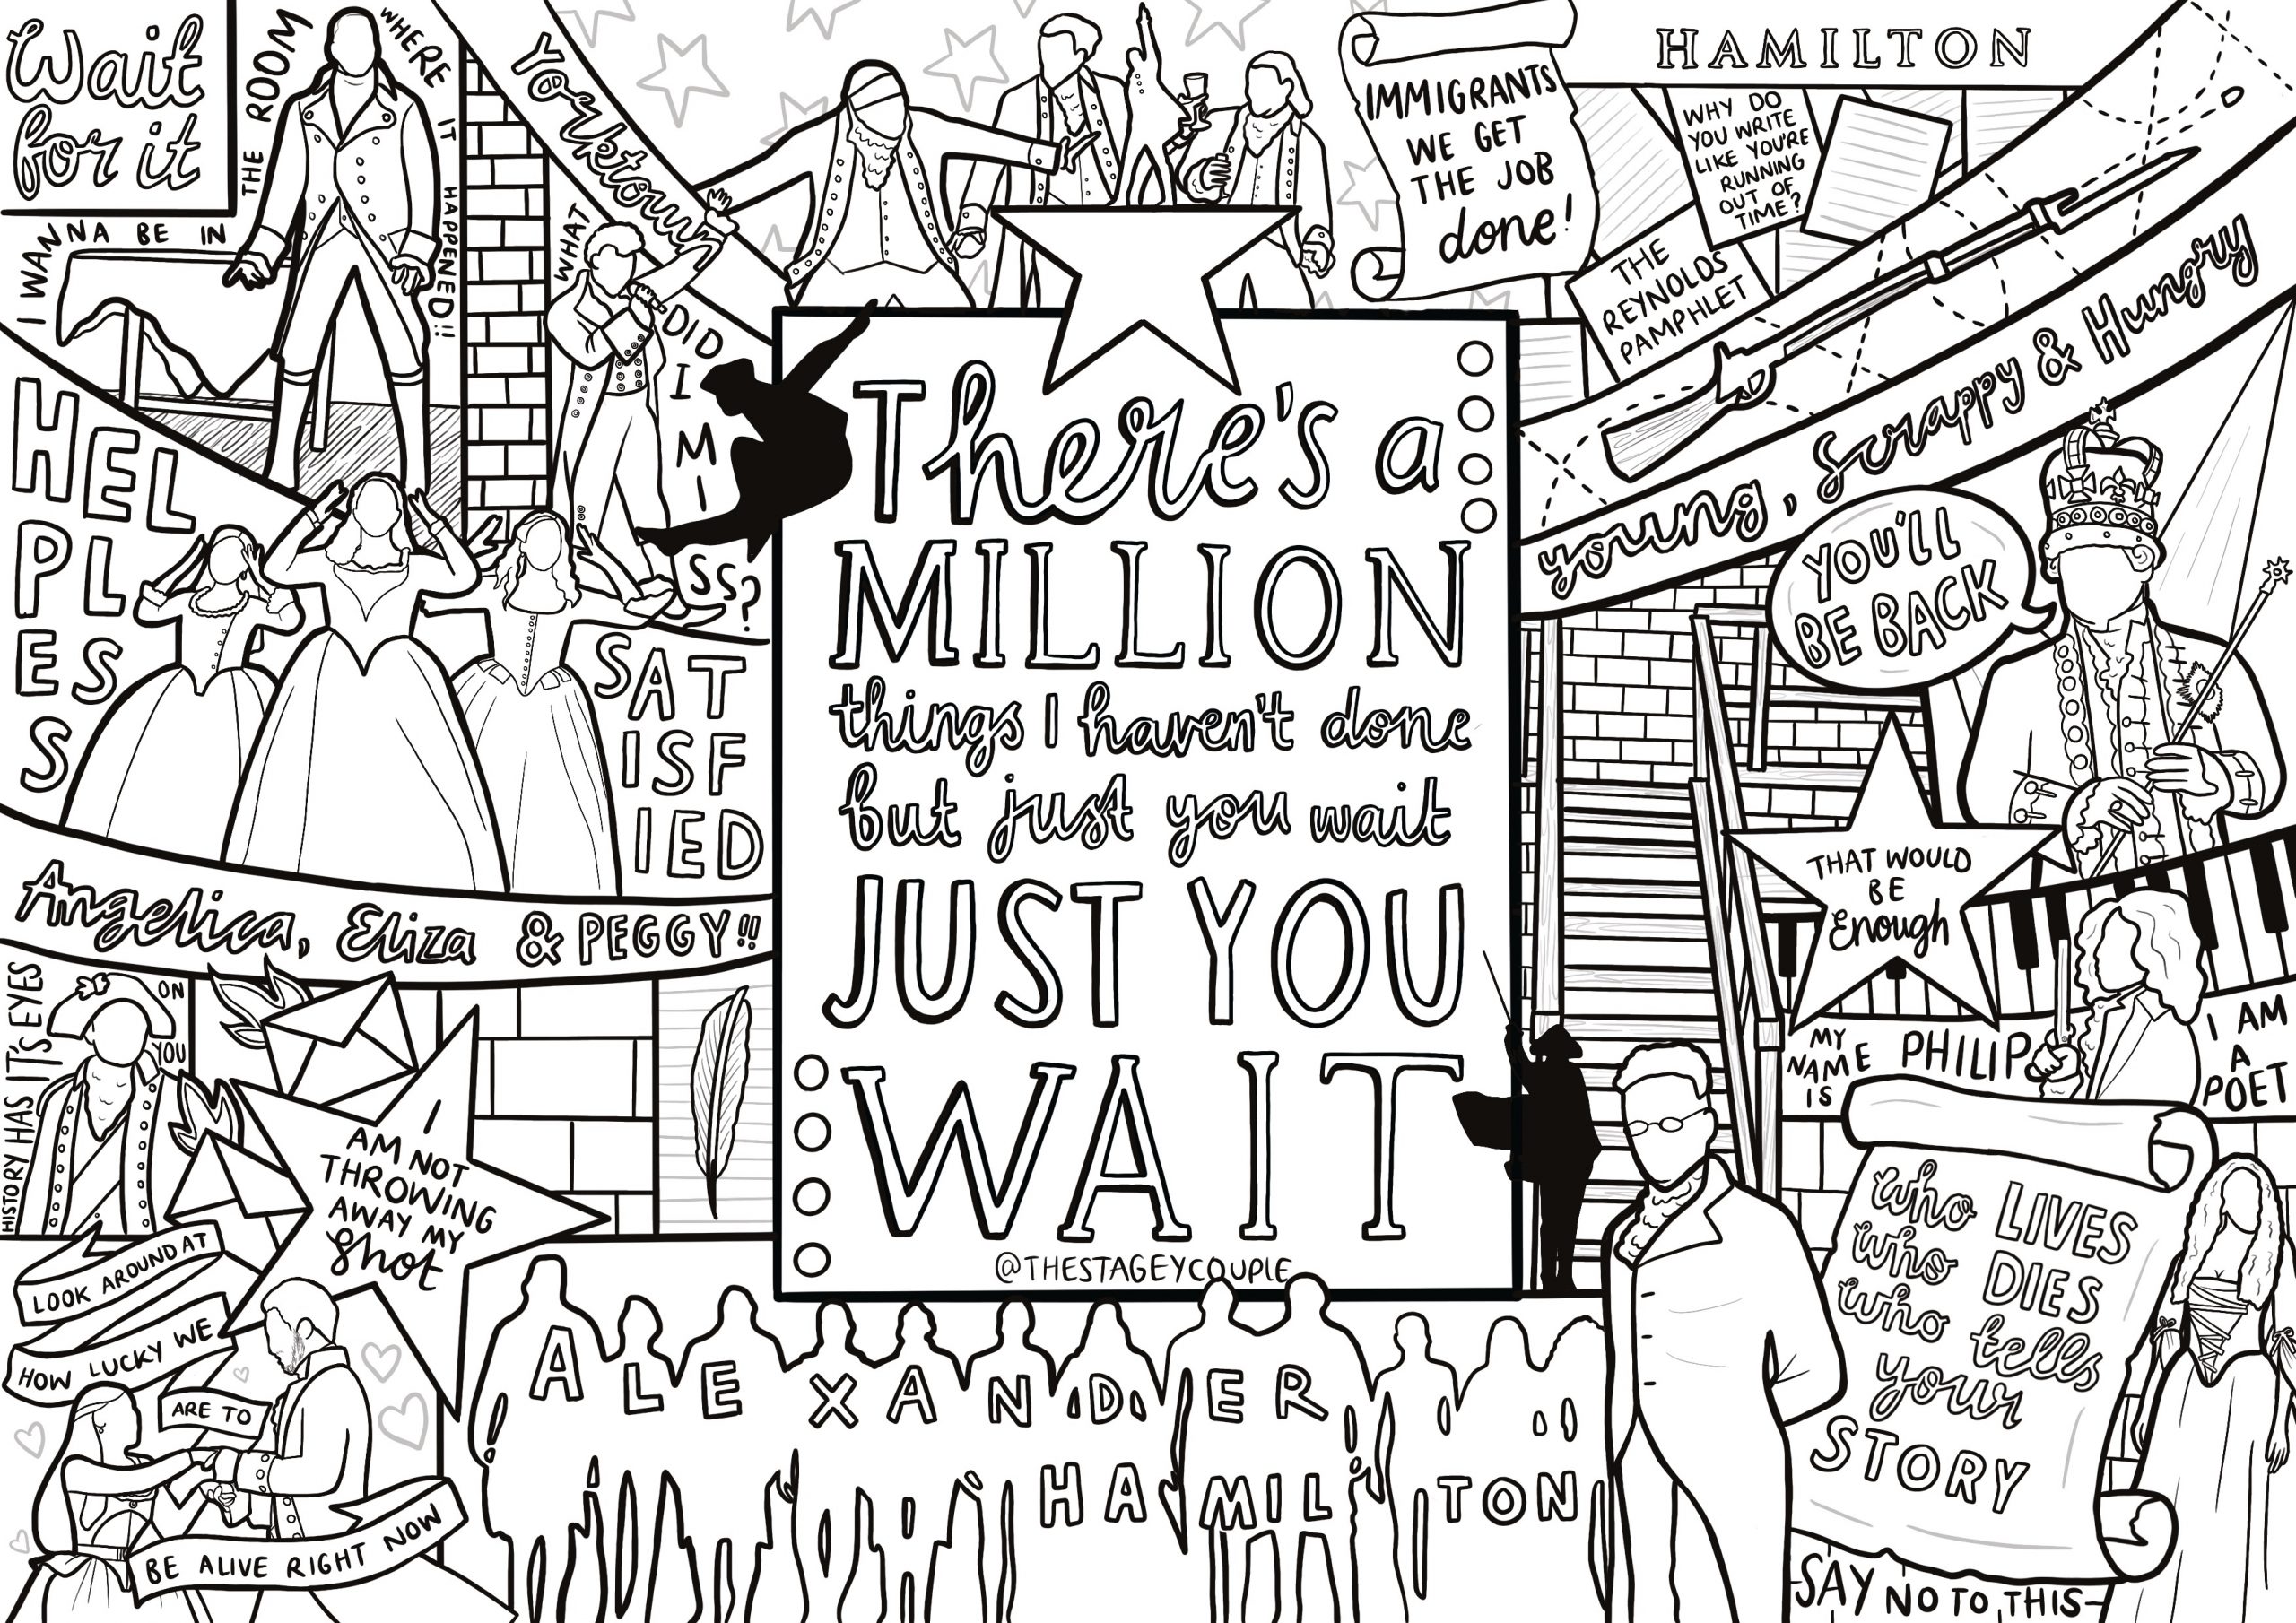 Wait
for it
I WANNA BE IN
THE ROOM
WHERE IT
HAPPENED!!
Yorktown
WHAT
DID
I
M
I
SS?
IMMIGRANTS
WE GET
THE JOB
done!
HAMILTON
WHY DO
YOU WRITE
LIKE YOU'RE
RUNNING
OUT OF
TIME?
THE
REYNOLDS
PAMPHLET
young, Scrappy & Hungry
YOU'LL
BE BACK
HEL
PL
ES
S
SAT
ISF
IED
Angelica, Eliza & PEGGY!!
There's a
MILLION
things I haven't done
but just you wait
JUST YOU
WAIT
@THESTAGEYCOUPLE
THAT WOULD
BE
Enough
MY
NAME
IS
PHILIP
I AM
A
POET
HISTORY HAS IT'S EYES
ON
YOU
I
AM NOT
THROWING
AWAY MY
Shot
LOOK AROUND AT
HOW LUCKY WE
ARE TO
BE ALIVE RIGHT NOW
ALEXANDER
HAMILTON
who LIVES
who DIES
who tells
your
STORY
SAY NO TO THIS